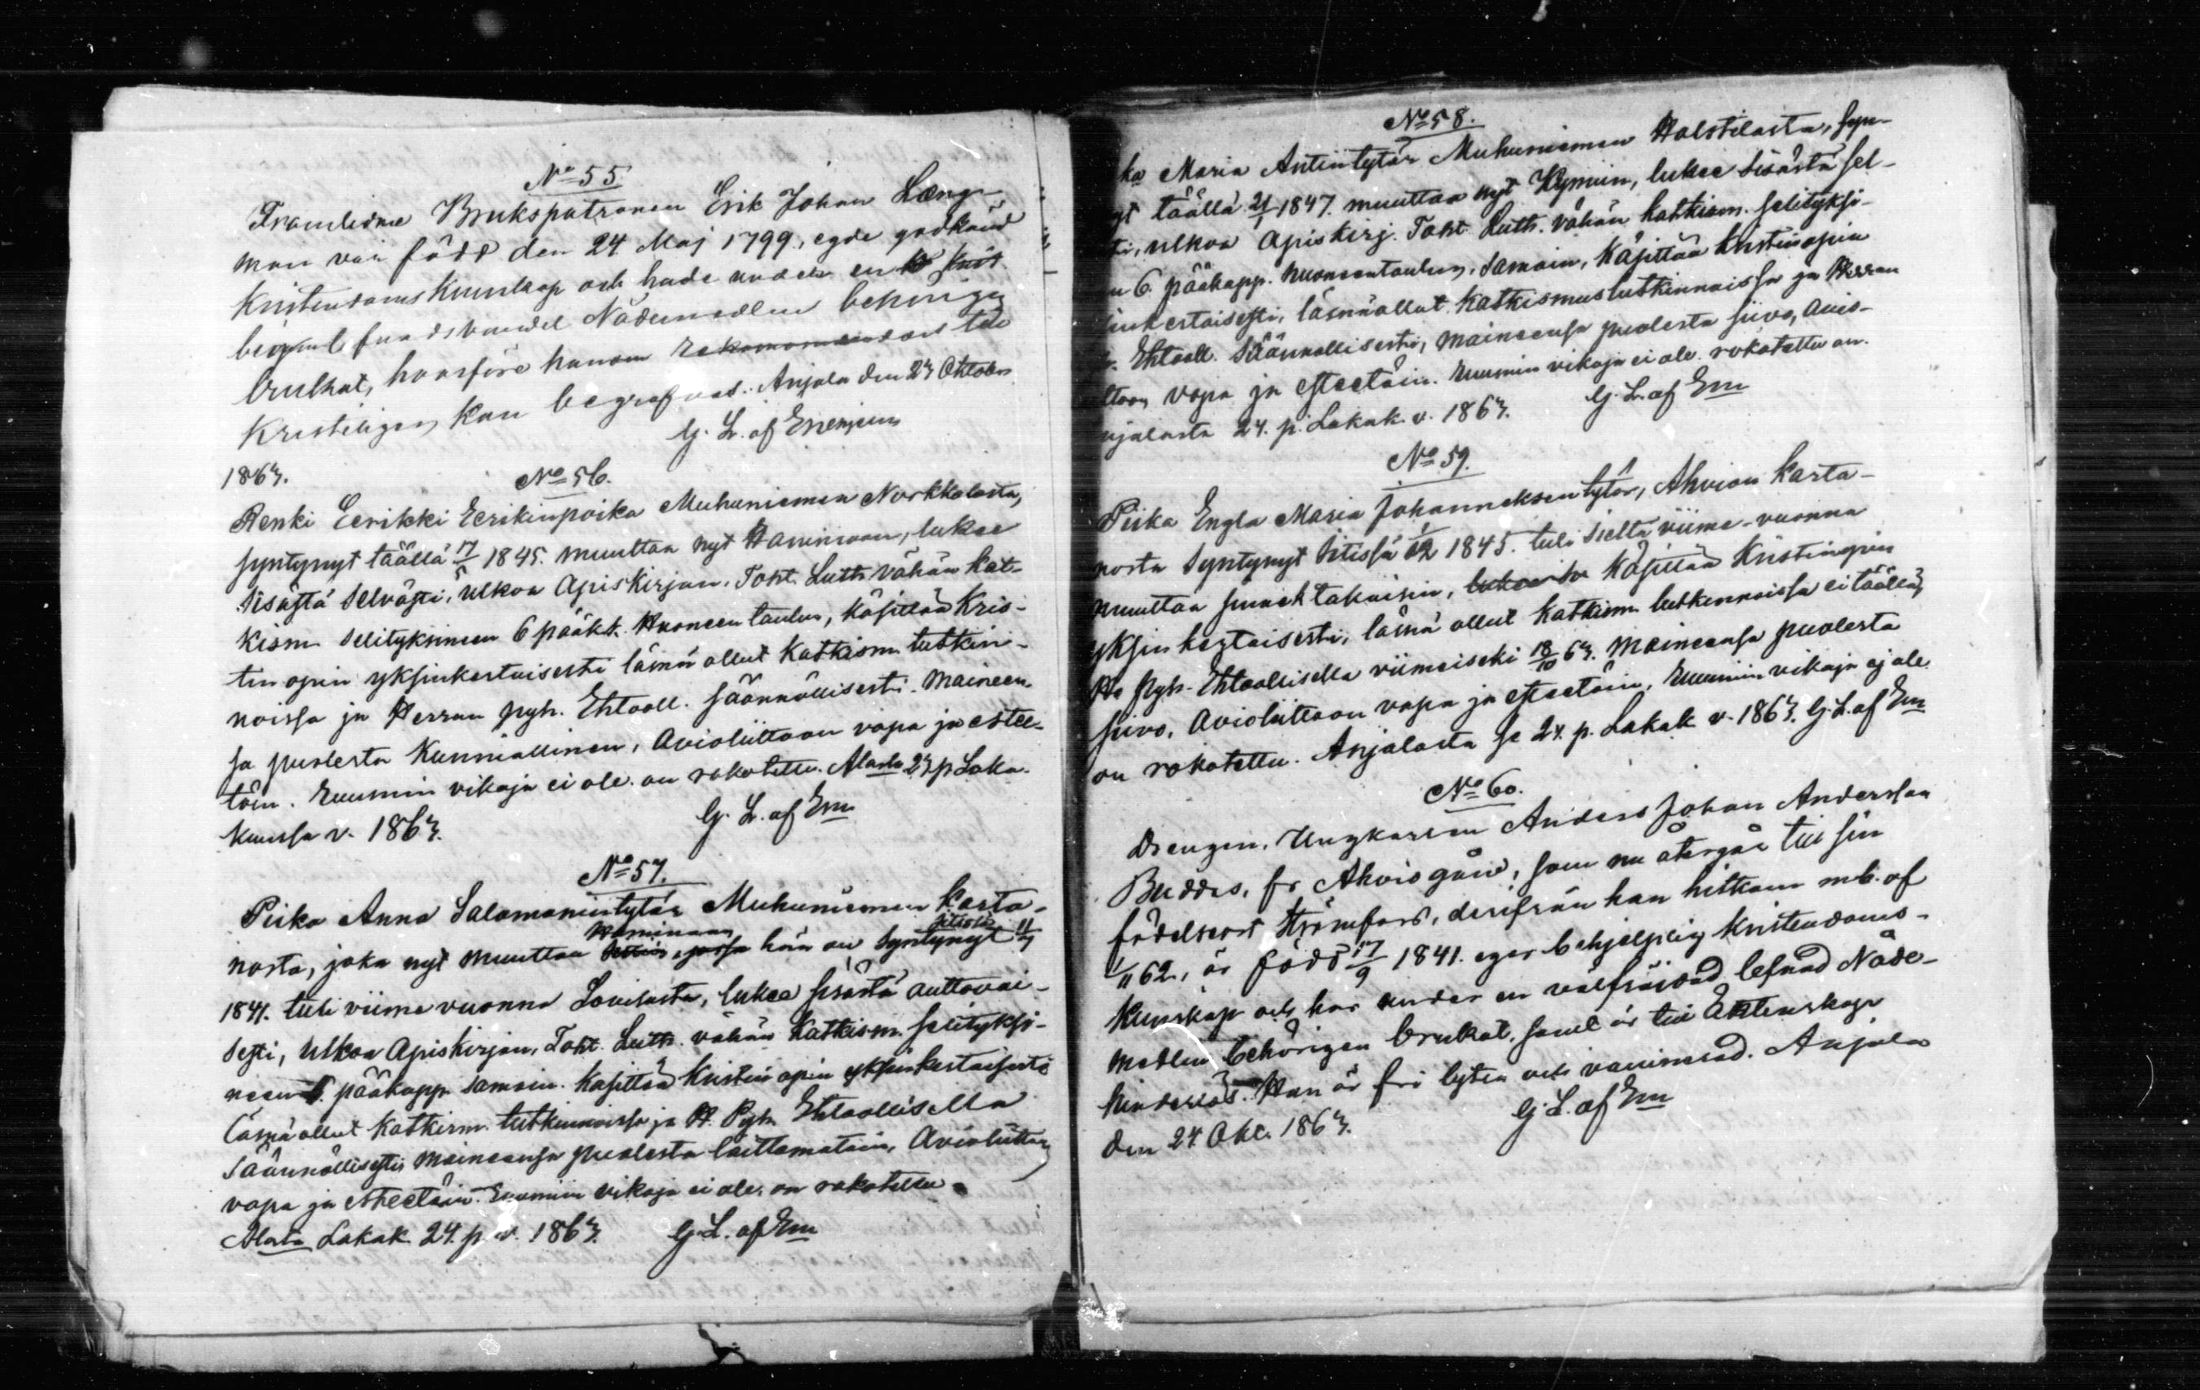 No 55.
Framlidne Brukspatronen Erik Johan Læng-
man var född den 24 Maj 1799, egde godkänd
Kristendomskunskap och hade under en
lefnadsvandel Nådemedlen behörigen
brukat, hvarföre honom
Kristeligen kan begrafvas. Anjala den 24 Oktober
1863. G. L. af Enehjelm
No 56.
Renki Eerikki Eerikinpoika Muhuniemen Norkkolasta,
syntynyt täällä 17/5 1845. muuttaa nyt Haminaan, lukee
sisästä selvästi, ulkoa Apiskirjan. Toht. Luth. vähän kat-
kism selityksineen 6 pääkt. Huoneen taulun, käsittää Kris-
tin opin yksinkertaisesti läsnä ollut Katkism. tutkin-
noissa ja Herran pyh. Ehtooll. säännöllisesti. Maineen-
sa puolesta Kunniallinen, Avioliittoon vapa ja estee-
töin. Ruumiin vikoja ei ole. on rokotettu. Alasta 24 p Loka-
kuussa v. 1863. G. L. af Em
No 57.
Piika Anna Salamonintytär Muhuniemen karta-
nosta, joka nyt muuttaa Haminaan, hän on syntynyt Sitissä 11/7
1841. tuli viime vuonna Lovisasta, lukee sisästä auttavai-
sesti, ulkoa Apiskirjan, Toht. Luth. vähän Katkism. selityksi-
neen 6 pääkapp. samoin. Käsittää Kristin opin yksinkertaisesti
Läsnä ollut Katkism. tutkinnoissa ja H. Pyh. Ehtoollisella
Säännöllisesti Maineensa puolesta laittamatoin, Avioliittoon
vapa ja esteetöin. Ruumiin vikoja ei ole. on rokotettu.
Alasta Lokak. 24. p. v. 1863. G. L. af Em
No 58.
ka Maria Antintytär Muhuniemen Holstilasta, syn-
yt täällä 21/1 1847. muuttaa nyt Kymiin, lukee sisästä sel-
ti, ulkoa Apiskirj. Toht. Luth. vähän katkism. selityksi-
n 6 pääkapp. huoneentaulun, samoin, käsittää kristinopin
inkertaisesti, läsnäollut katkismustutkinnoissa ja Herran
Ehtooll. Säännöllisesti, maineensa puolesta siivo, Avio-
ttoon vapa ja esteetöin. Ruumiin vikoja ei ole. rokotettu on.
njalasta 24. p. Lokak. v. 1863. G. L. af Em
No 59.
Piika Engla Maria Johanneksentytär, Ahvion karta-
nosta syntynyt Sitissä 1/12 1845. tuli sieltä viime-vuonna
muuttaa sinnek takaisin, käsittää Kristinopin
yksinkertaisesti, läsnä ollut katkism. tutkinnoissa ei täällä,
Ho pyh. Ehtoollisella viimeiseksi 18/10 63. Maineensa puolesta
siivo, Avioliittoon vapa ja esteetöin, Ruumiin vikoja ej ole.
on rokotettu. Anjalasta se 24. p. Lokak. v. 1863. G. L. af Em
No 60.
Drengen, Ungkarlen Anders Johan Andersson
Buddas, fr Ahvio gård, som nu återgår till sin
födelseort Strömfors, derifrån han hitkom m b. af
1/11 62., är född 17/9 1841. eger behjelplig Kristendoms-
kunskap och har under en välfräjdad lefnad Nåde-
medlen behörigen brukat, samt är till Äktenskap
hinderlös. Han är fri lyten och vaccinerad. Anjala
den 24 Okt. 1863. G. L. af Em